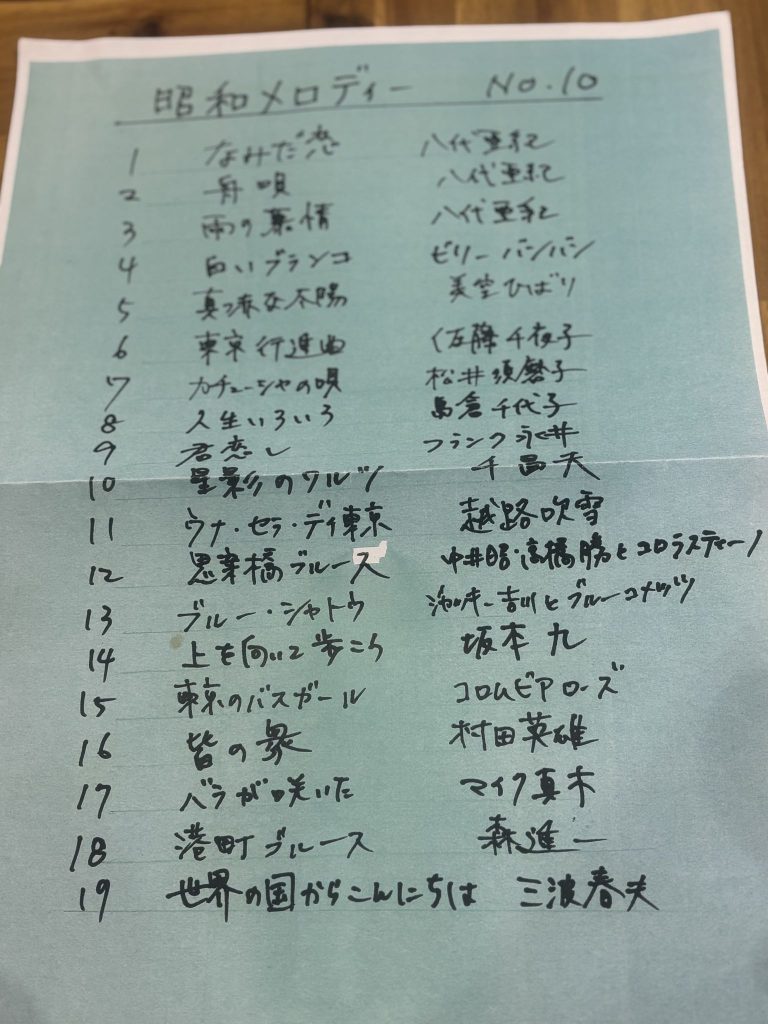 昭和メロディー No.10
1 なみだ恋 八代亜紀
2 舟唄 八代亜紀
3 雨の慕情 八代亜紀
4 白いブランコ ビリーバンバン
5 真っ赤な太陽 美空ひばり
6 東京行進曲 佐藤千夜子
7 カチューシャの唄 松井須磨子
8 人生いろいろ 島倉千代子
9 君恋し フランク永井
10 星影のワルツ 千昌夫
11 ウナ・セラ・ディ東京 越路吹雪
12 思案橋ブルース 中井昭・高橋勝とコロラティーノ
13 ブルー・シャトウ ジャッキー吉川とブルーコメッツ
14 上を向いて歩こう 坂本九
15 東京のバスガール コロムビアローズ
16 皆の衆 村田英雄
17 バラが咲いた マイク真木
18 港町ブルース 森進一
19 世界の国からこんにちは 三波春夫